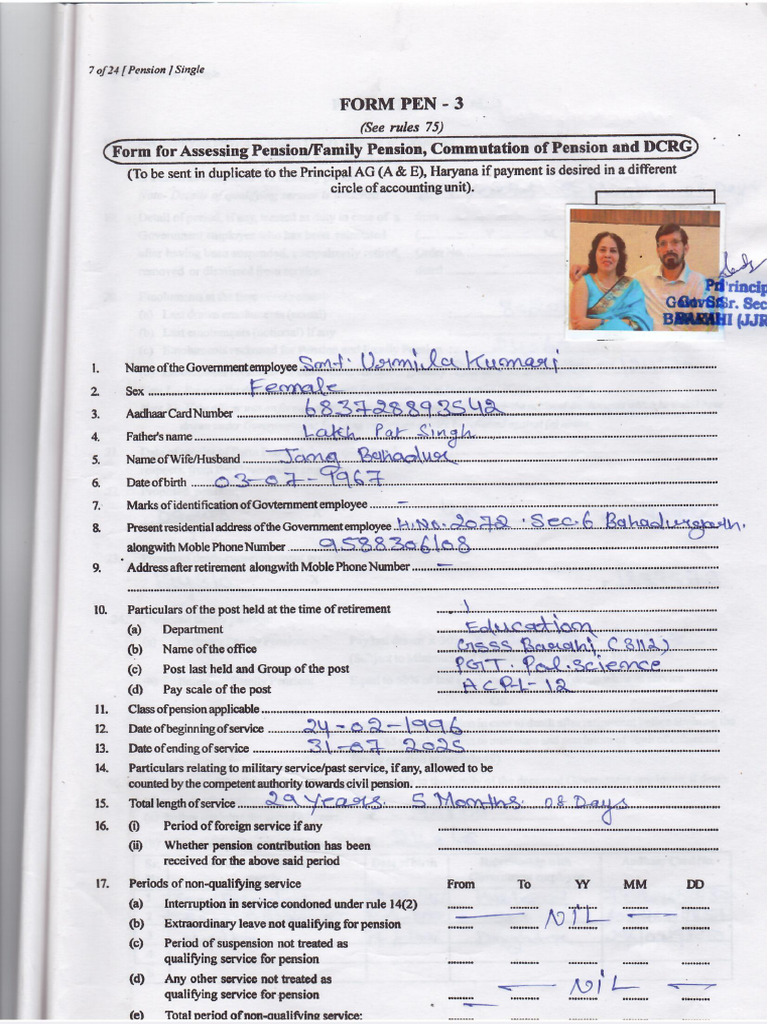 7 of 24 [ Pension ] Single
FORM PEN - 3
(See rules 75)
Form for Assessing Pension/Family Pension, Commutation of Pension and DCRG
(To be sent in duplicate to the Principal AG (A & E), Haryana if payment is desired in a different
circle of accounting unit).
Principal
Govt. Sr. Sec
BARAHI (JJR
1. Name of the Government employee Smt. Urmila Kumari
2. Sex Female
3. Aadhaar Card Number 683728893542
4. Father's name Lakh Pat Singh
5. Name of Wife/Husband Jang Bahadur
6. Date of birth 03-07-1967
7. Marks of identification of Govternment employee –
8. Present residential address of the Government employee H.No. 2072. Sec. 6 Bahadurgarh.
alongwith Moble Phone Number 9588306108
9. Address after retirement alongwith Moble Phone Number –
10. Particulars of the post held at the time of retirement
(a) Department Education
(b) Name of the office GSSS Barahi (8112)
(c) Post last held and Group of the post PGT. Pol. Science
(d) Pay scale of the post ACPL-12
11. Class of pension applicable
12. Date of beginning of service 24-02-1996
13. Date of ending of service 31-07 2025
14. Particulars relating to military service/past service, if any, allowed to be
counted by the competent authority towards civil pension.
15. Total length of service 29 Years. 5 Months. 08 Days
16. (i) Period of foreign service if any
(ii) Whether pension contribution has been
received for the above said period
17. Periods of non-qualifying service From To YY MM DD
(a) Interruption in service condoned under rule 14(2)
(b) Extraordinary leave not qualifying for pension NIL
(c) Period of suspension not treated as
qualifying service for pension
(d) Any other service not treated as NIL
qualifying service for pension
(e) Total period of non-qualifying service: